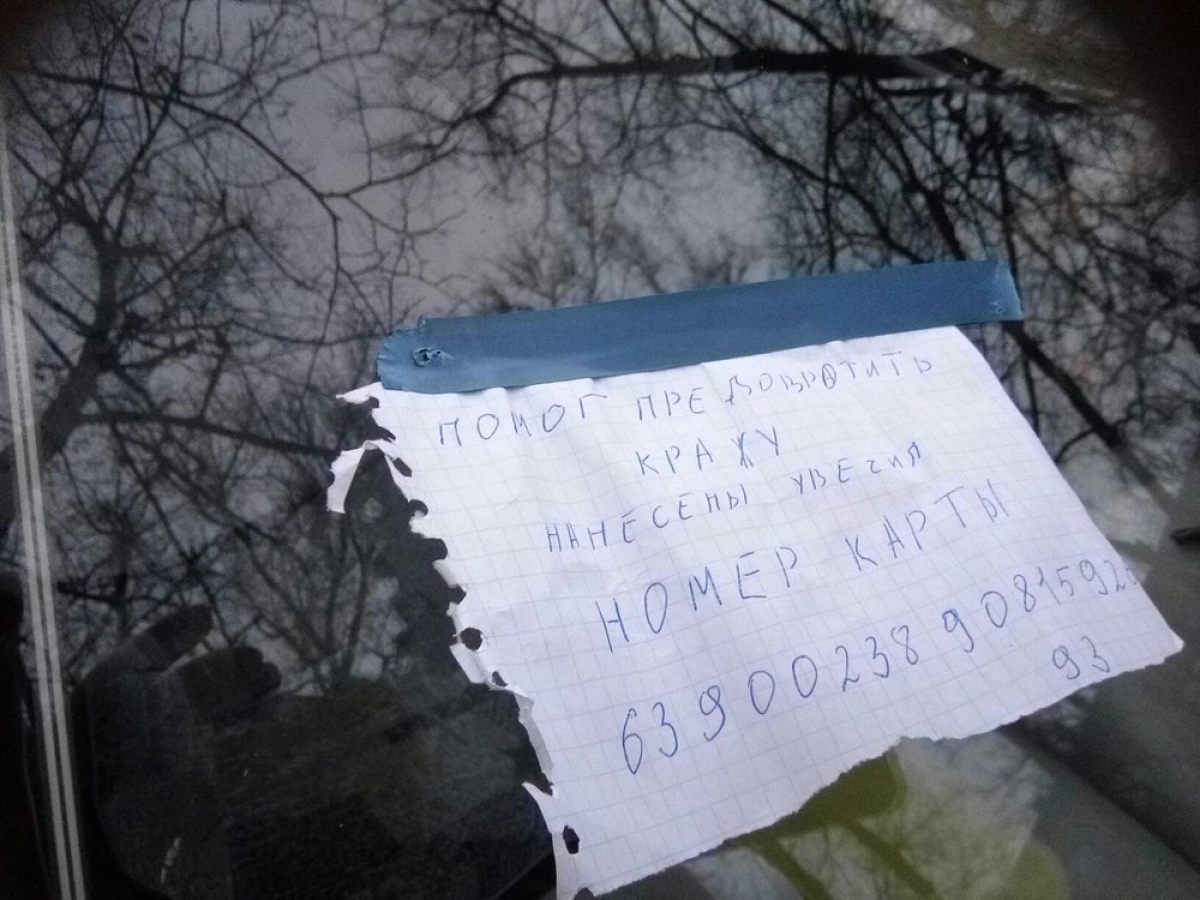 ПОМОГ ПРЕДОВРАТИТЬ
КРАЖУ
НАНЕСЕНЫ УВЕЧИЯ
НОМЕР КАРТЫ
639002389081592
93